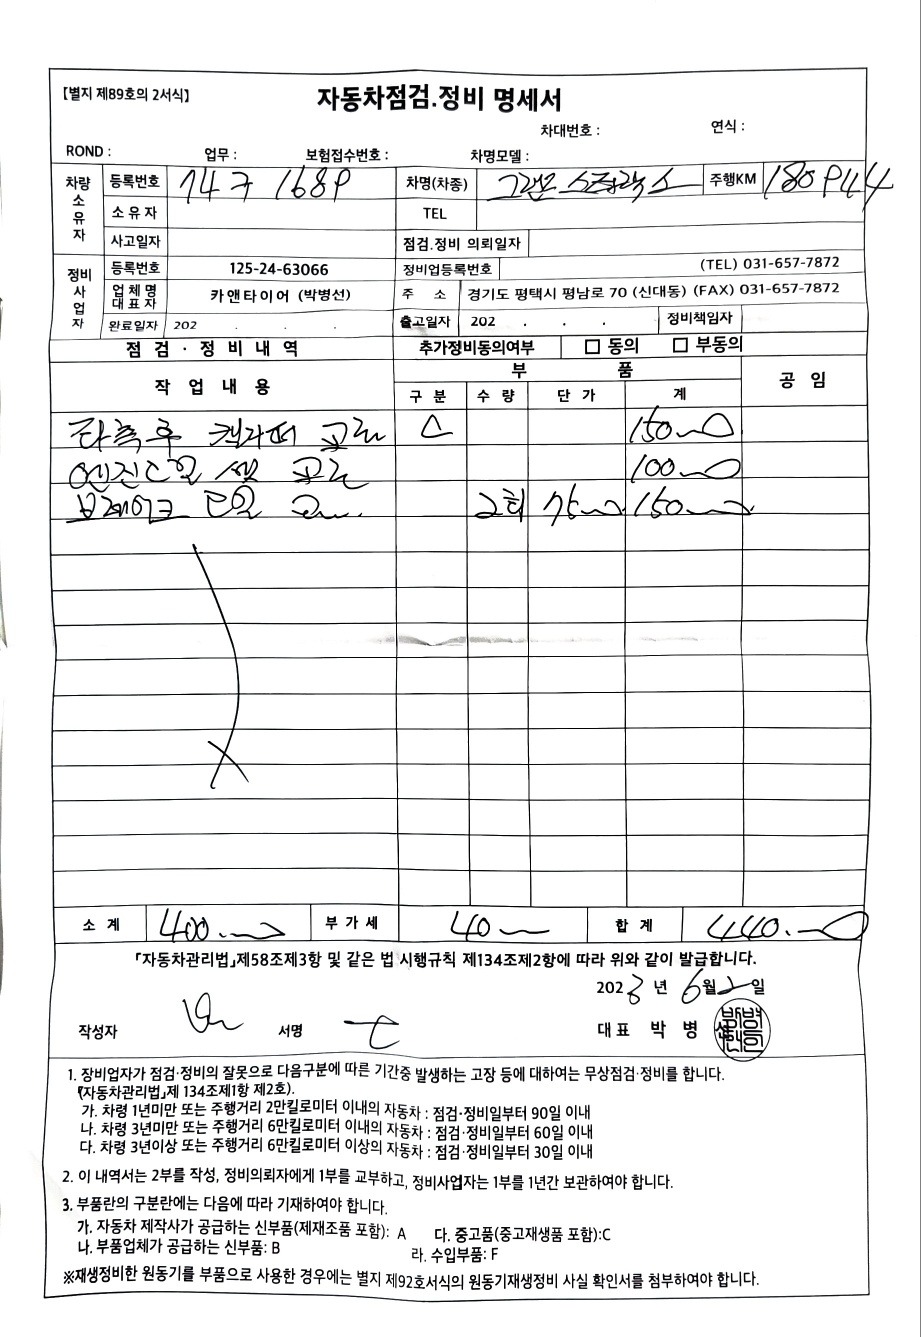 【별지 제89호의 2서식】
자동차점검.정비 명세서
차대번호 : 연식 :
ROND : 업무 : 보험접수번호 : 차명모델 :
차량소유자 등록번호 74구 1689 차명(차종) 그랜드 스타렉스 주행KM 180944
소유자 TEL
사고일자 점검.정비 의뢰일자
정비사업자 등록번호 125-24-63066 정비업등록번호 (TEL) 031-657-7872
업체명 대표자 카앤타이어 (박병선) 주 소 경기도 평택시 평남로 70 (신대동) (FAX) 031-657-7872
완료일자 202 . . . 출고일자 202 . . . 정비책임자
점검·정비내역 추가정비동의여부 □ 동의 □ 부동의
작업내용 부 품 공임
구분 수량 단가 계
후 캘리퍼 교환 150
엔진오일 교환 100
브레이크 오일 2회 75 150
소계 400 부가세 40 합계 440
「자동차관리법」제58조제3항 및 같은 법 시행규칙 제134조제2항에 따라 위와 같이 발급합니다.
2023년 6월 2일
작성자 서명 대표 박병선
1. 장비업자가 점검·정비의 잘못으로 다음구분에 따른 기간중 발생하는 고장 등에 대하여는 무상점검·정비를 합니다.
「자동차관리법」제 134조제1항 제2호).
가. 차령 1년미만 또는 주행거리 2만킬로미터 이내의 자동차 : 점검·정비일부터 90일 이내
나. 차령 3년미만 또는 주행거리 6만킬로미터 이내의 자동차 : 점검·정비일부터 60일 이내
다. 차령 3년이상 또는 주행거리 6만킬로미터 이상의 자동차 : 점검·정비일부터 30일 이내
2. 이 내역서는 2부를 작성, 정비의뢰자에게 1부를 교부하고, 정비사업자는 1부를 1년간 보관하여야 합니다.
3. 부품란의 구분란에는 다음에 따라 기재하여야 합니다.
가. 자동차 제작사가 공급하는 신부품(제재조품 포함): A 다. 중고품(중고재생품 포함):C
나. 부품업체가 공급하는 신부품: B 라. 수입부품: F
※재생정비한 원동기를 부품으로 사용한 경우에는 별지 제92호서식의 원동기재생정비 사실 확인서를 첨부하여야 합니다.